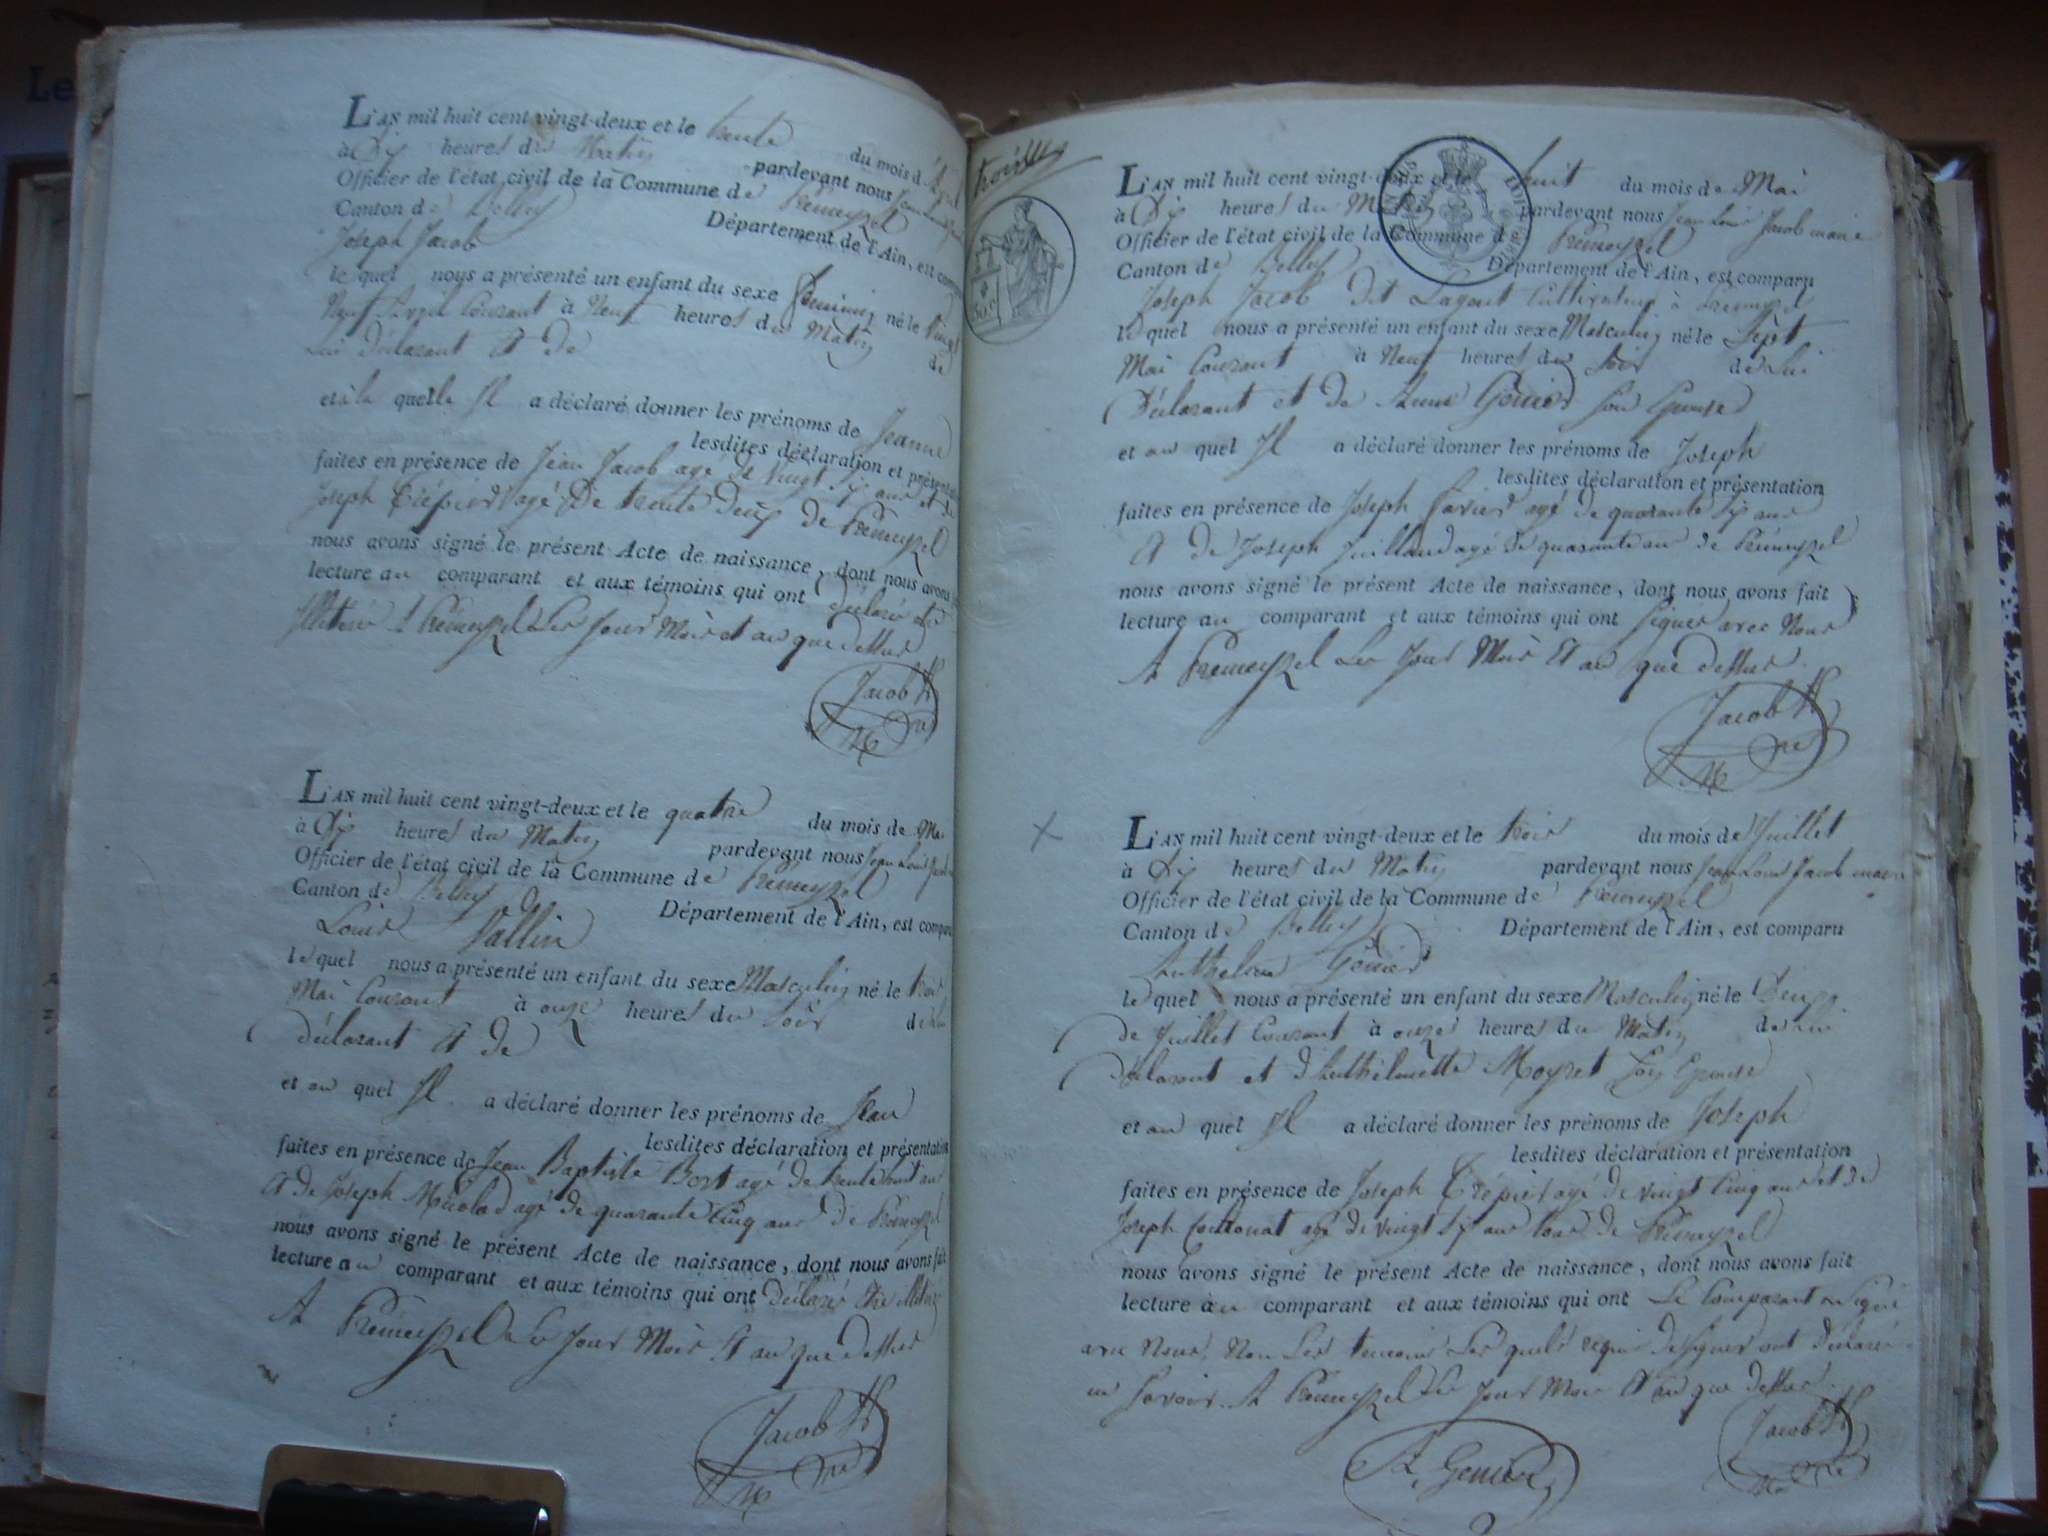 L'AN mil huit cent vingt-deux et le trente du mois d'Avril
à Dix heures du Matin pardevant nous Jean Louis
Officier de l'état civil de la Commune de Prémeyzel
Canton de Belley Département de l'Ain, est comparu
Joseph Jacob
le quel nous a présenté un enfant du sexe féminin né le Vingt
Neuf Avril Courant à Neuf heures du Matin de
Lui déclarant et de
et à la quelle Il a déclaré donner les prénoms de Jeanne
lesdites déclaration et présentation
faites en présence de Jean Jacob agé de Vingt Six ans et de
Joseph Trépier agé De trente Deux de Prémeyzel
nous avons signé le présent Acte de naissance, dont nous avons
lecture au comparant et aux témoins qui ont déclaré
A Prémeyzel Les Jour Mois et an que dessus
Jacob
L'AN mil huit cent vingt-deux et le quatre du mois de Mai
à Dix heures du Matin pardevant nous Jean Louis Jacob
Officier de l'état civil de la Commune de Prémeyzel
Canton de Belley Département de l'Ain, est comparu
Louis Vallin
le quel nous a présenté un enfant du sexe Masculin né le trois
Mai Courant à onze heures du Soir de Lui
déclarant et de
et au quel Il a déclaré donner les prénoms de Jean
lesdites déclaration et présentation
faites en présence de Jean Baptiste Bort agé de trente huit ans
et de Joseph agé de quarante Cinq ans De Prémeyzel
nous avons signé le présent Acte de naissance, dont nous avons fait
lecture au comparant et aux témoins qui ont déclaré
A Prémeyzel Les Jour Mois et an que dessus
Jacob
L'AN mil huit cent vingt-deux et le huit du mois de Mai
à Dix heures du Matin pardevant nous Jean Louis Jacob maire
Officier de l'état civil de la Commune de Prémeyzel
Canton de Belley Département de l'Ain, est comparu
Joseph Jacob dit Cultivateur à Prémeyzel
le quel nous a présenté un enfant du sexe Masculin né le Sept
Mai Courant à Neuf heures du Soir de Lui
Déclarant et de Génier Son Epouse
et au quel Il a déclaré donner les prénoms de Joseph
lesdites déclaration et présentation
faites en présence de Joseph Favier agé de quarante Six ans
et de Joseph Juilland agé de quarante ans de Prémeyzel
nous avons signé le présent Acte de naissance, dont nous avons fait
lecture au comparant et aux témoins qui ont Signés avec Nous
A Prémeyzel Les Jour Mois Et an que dessus
Jacob
L'AN mil huit cent vingt-deux et le trois du mois de Juillet
à Dix heures du Matin pardevant nous Jean Louis Jacob maire
Officier de l'état civil de la Commune de Prémeyzel
Canton de Belley Département de l'Ain, est comparu
Anthelme Génier
le quel nous a présenté un enfant du sexe Masculin né le Deux
de Juillet Courant à onze heures du Matin de Lui
Déclarant et d'Anthelmette Moyret Son Epouse
et au quel Il a déclaré donner les prénoms de Joseph
lesdites déclaration et présentation
faites en présence de Joseph Trépier agé de vingt Cinq ans et de
Joseph agé de vingt Six ans tous de Prémeyzel
nous avons signé le présent Acte de naissance, dont nous avons fait
lecture au comparant et aux témoins qui ont Le Comparant Signé
avec Nous, Non Les temoins Les quels requis de Signer ont déclaré
ne Savoir. A Prémeyzel Les Jour Mois et an que dessus
A. Genier
Jacob